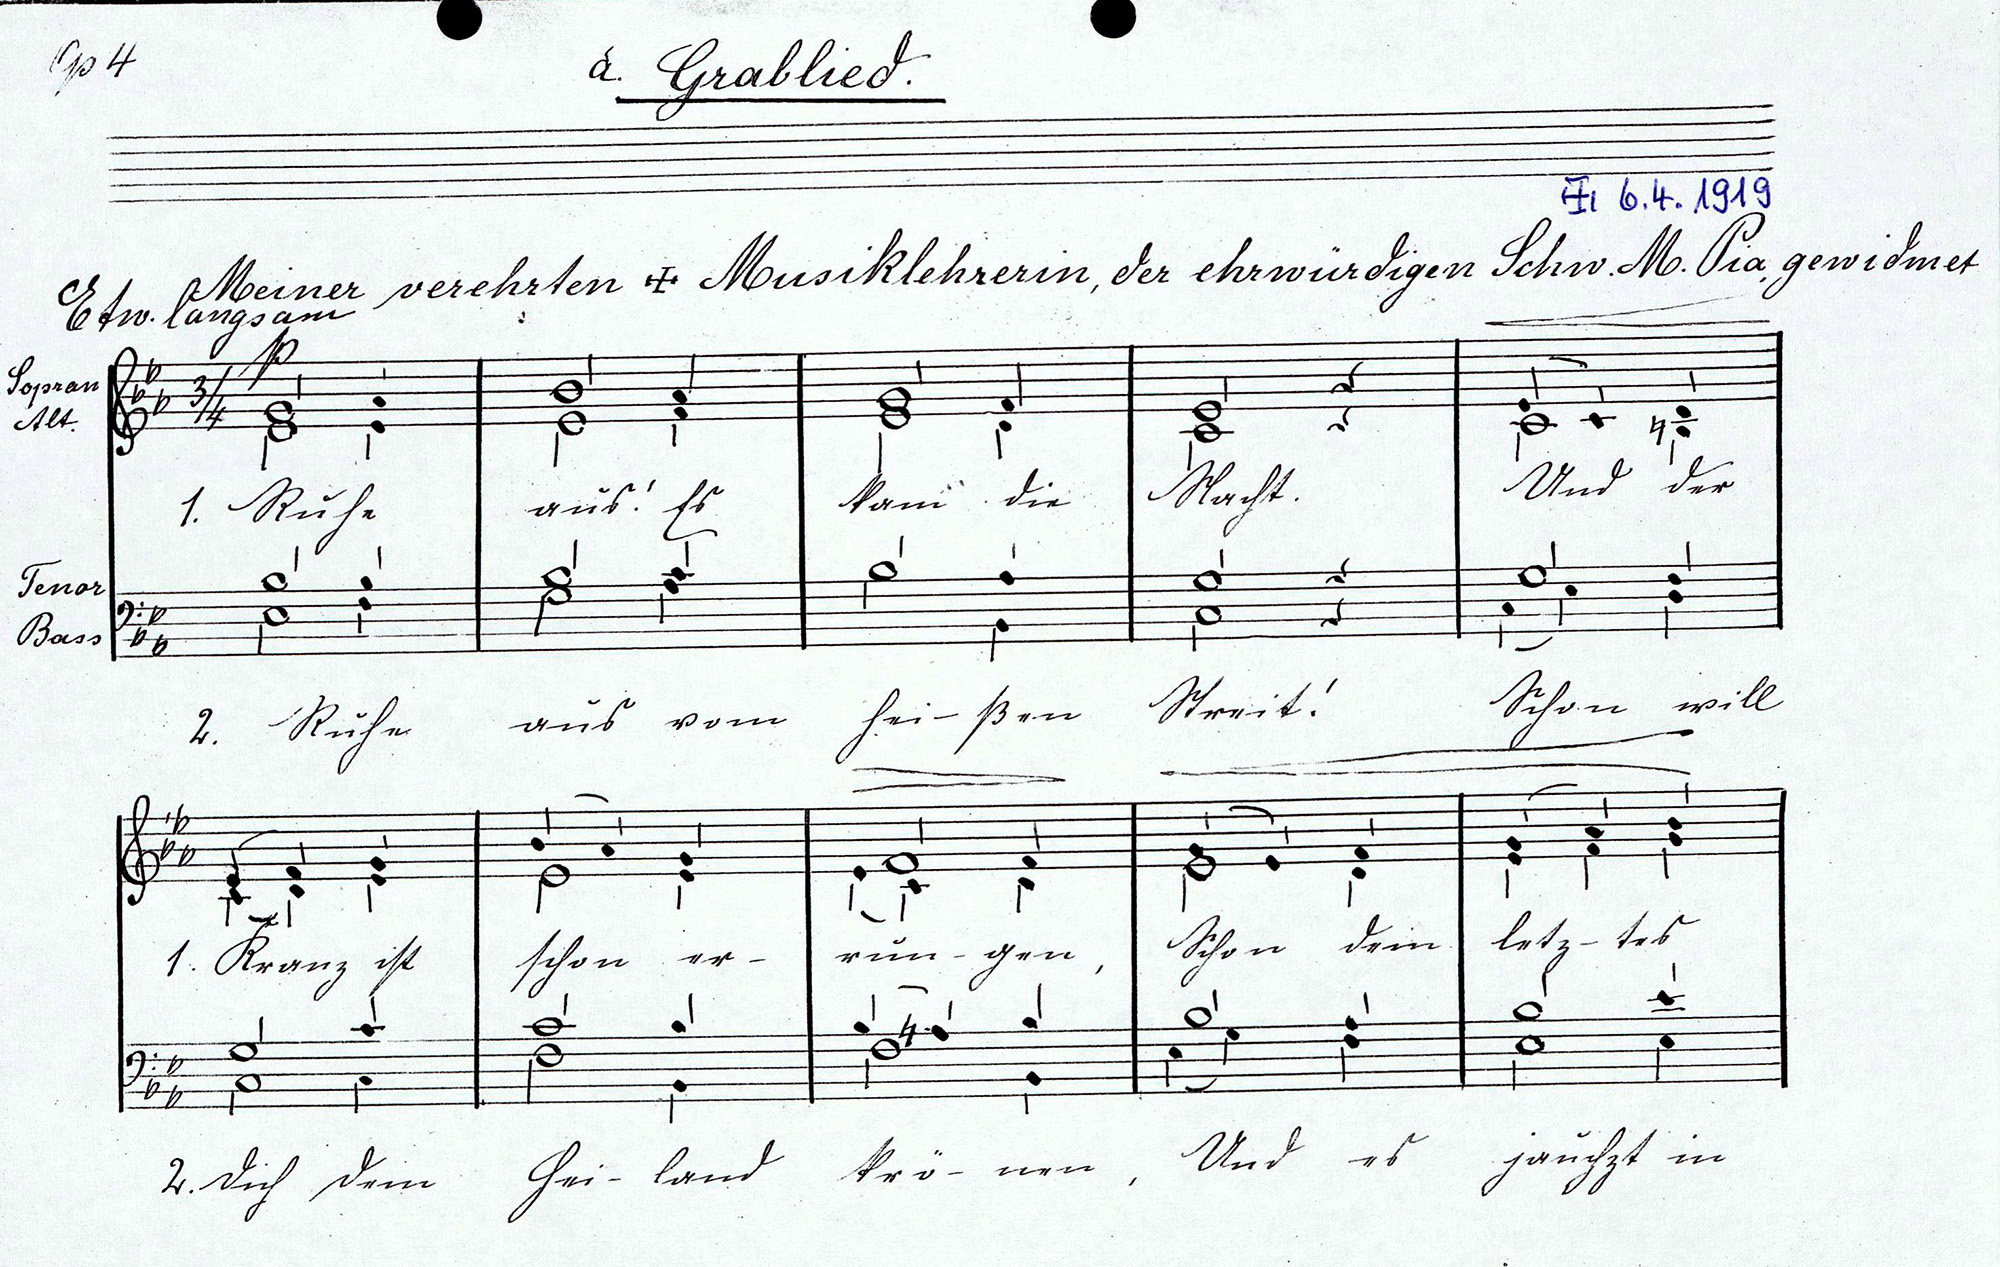 Op 4
a. Grablied.
6.4.1919
Meiner verehrten Musiklehrerin, der ehrwürdigen Schw. M. Pia, gewidmet
Etw. langsam
p
Sopran
Alt.
3/4
1. Ruhe aus! Es kam die Nacht. Und der
Tenor
Bass
2. Ruhe aus vom hei-ßen Streit! Schon will
1. Kranz ist schon er- run-gen, Schon dein letz-tes
2. dich dein Hei-land krö-nen, Und es jauchzt in